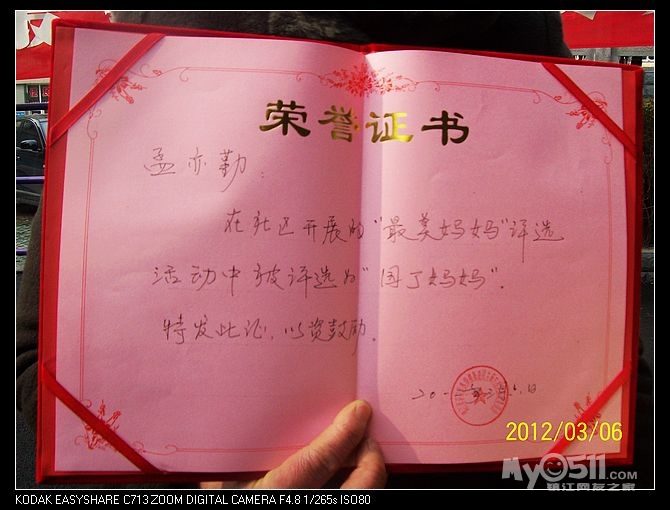 荣誉证书
孟亦勤:
在社区开展的“最美妈妈”评选
活动中被评选为“园丁妈妈”.
特发此证,以资鼓励.
2012/03/06
My0511.com
镇江网友之家
KODAK EASYSHARE C713 ZOOM DIGITAL CAMERA F4.8 1/265s ISO80